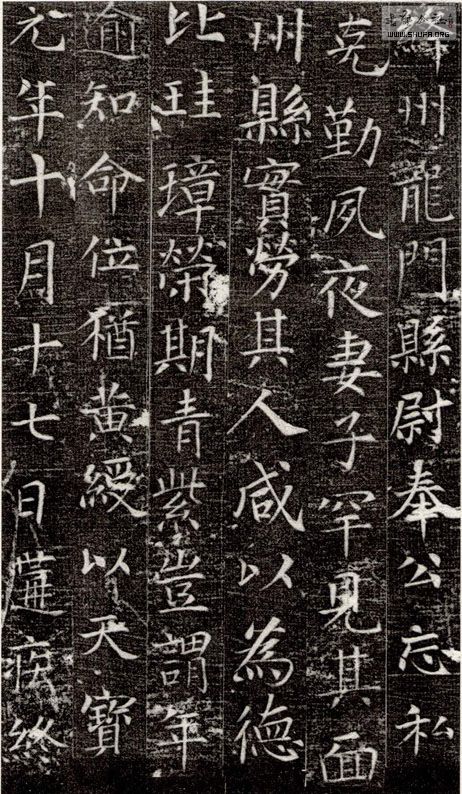 WWW.SHUFA.ORG
絳州龍門縣尉奉公忘私
克勤夙夜妻子罕見其面
州縣實勞其人咸以為德
比珪璋榮期青紫豈謂年
逾知命位猶黃綬以天寶
元年十月十七日遘疾終